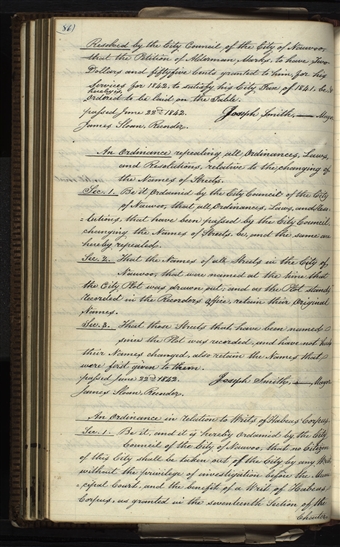 86)
Resolved by the City Council of the City of Nauvoo,
that the Petition of Alderman Marks, to have Two
Dollars and fifty five Cents granted to him, for his
services for 1842, to satisfy his City Dues of 1841, be &
hereby is
ordered to be laid on the Table.
passed June 22nd 1842. Joseph Smith, Mayor
James Sloan, Recorder.
An Ordinance repealing all Ordinances, Laws,
and Resolutions, relative to the changing of
the Names of Streets.
Sec. 1. Be it Ordained by the City Council of the City
of Nauvoo, that all Ordinances, Laws, and Reso-
lutions, that have been passed by the City Council
changing the Names of Streets, be, and the same are
hereby repealed.
Sec. 2. That the Names of all Streets in the City of
Nauvoo, that were named at the time that
the City Plot was drawn out, and as the Plot stands
recorded in the Recorders Office, retain their Original
Names.
Sec. 3. That those Streets that have been named
since the Plot was recorded, and have not had
their Names changed, also retain the Names that
were first given to them.
passed June 22nd 1842. Joseph Smith, Mayor
James Sloan, Recorder.
An Ordinance in relation to Writs of Habeas Corpus.
Sec. 1. Be it, and it is hereby ordained by the City
Council of the City of Nauvoo, that no Citizen
of this City shall be taken out of the City by any Writ
without the privilege of investigation before the Muni-
cipal Court, and the benefit of a Writ of Habeas
Corpus, as granted in the seventeenth Section of the
Charter